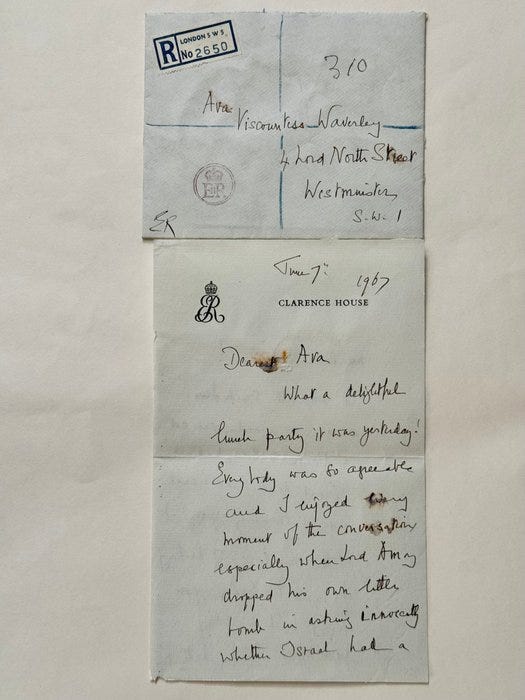 R LONDON S W 5
No 2650
310
Ava
Viscountess Waverley
4 Lord North Street
Westminster
S.W. 1
EIIR
ER
June 7th 1967
ER
CLARENCE HOUSE
Dearest Ava
What a delightful
lunch party it was yesterday!
Everybody was so agreeable
and I enjoyed every
moment of the conversation
especially when Lord
dropped his own little
bomb in asking innocently
whether Israel had a